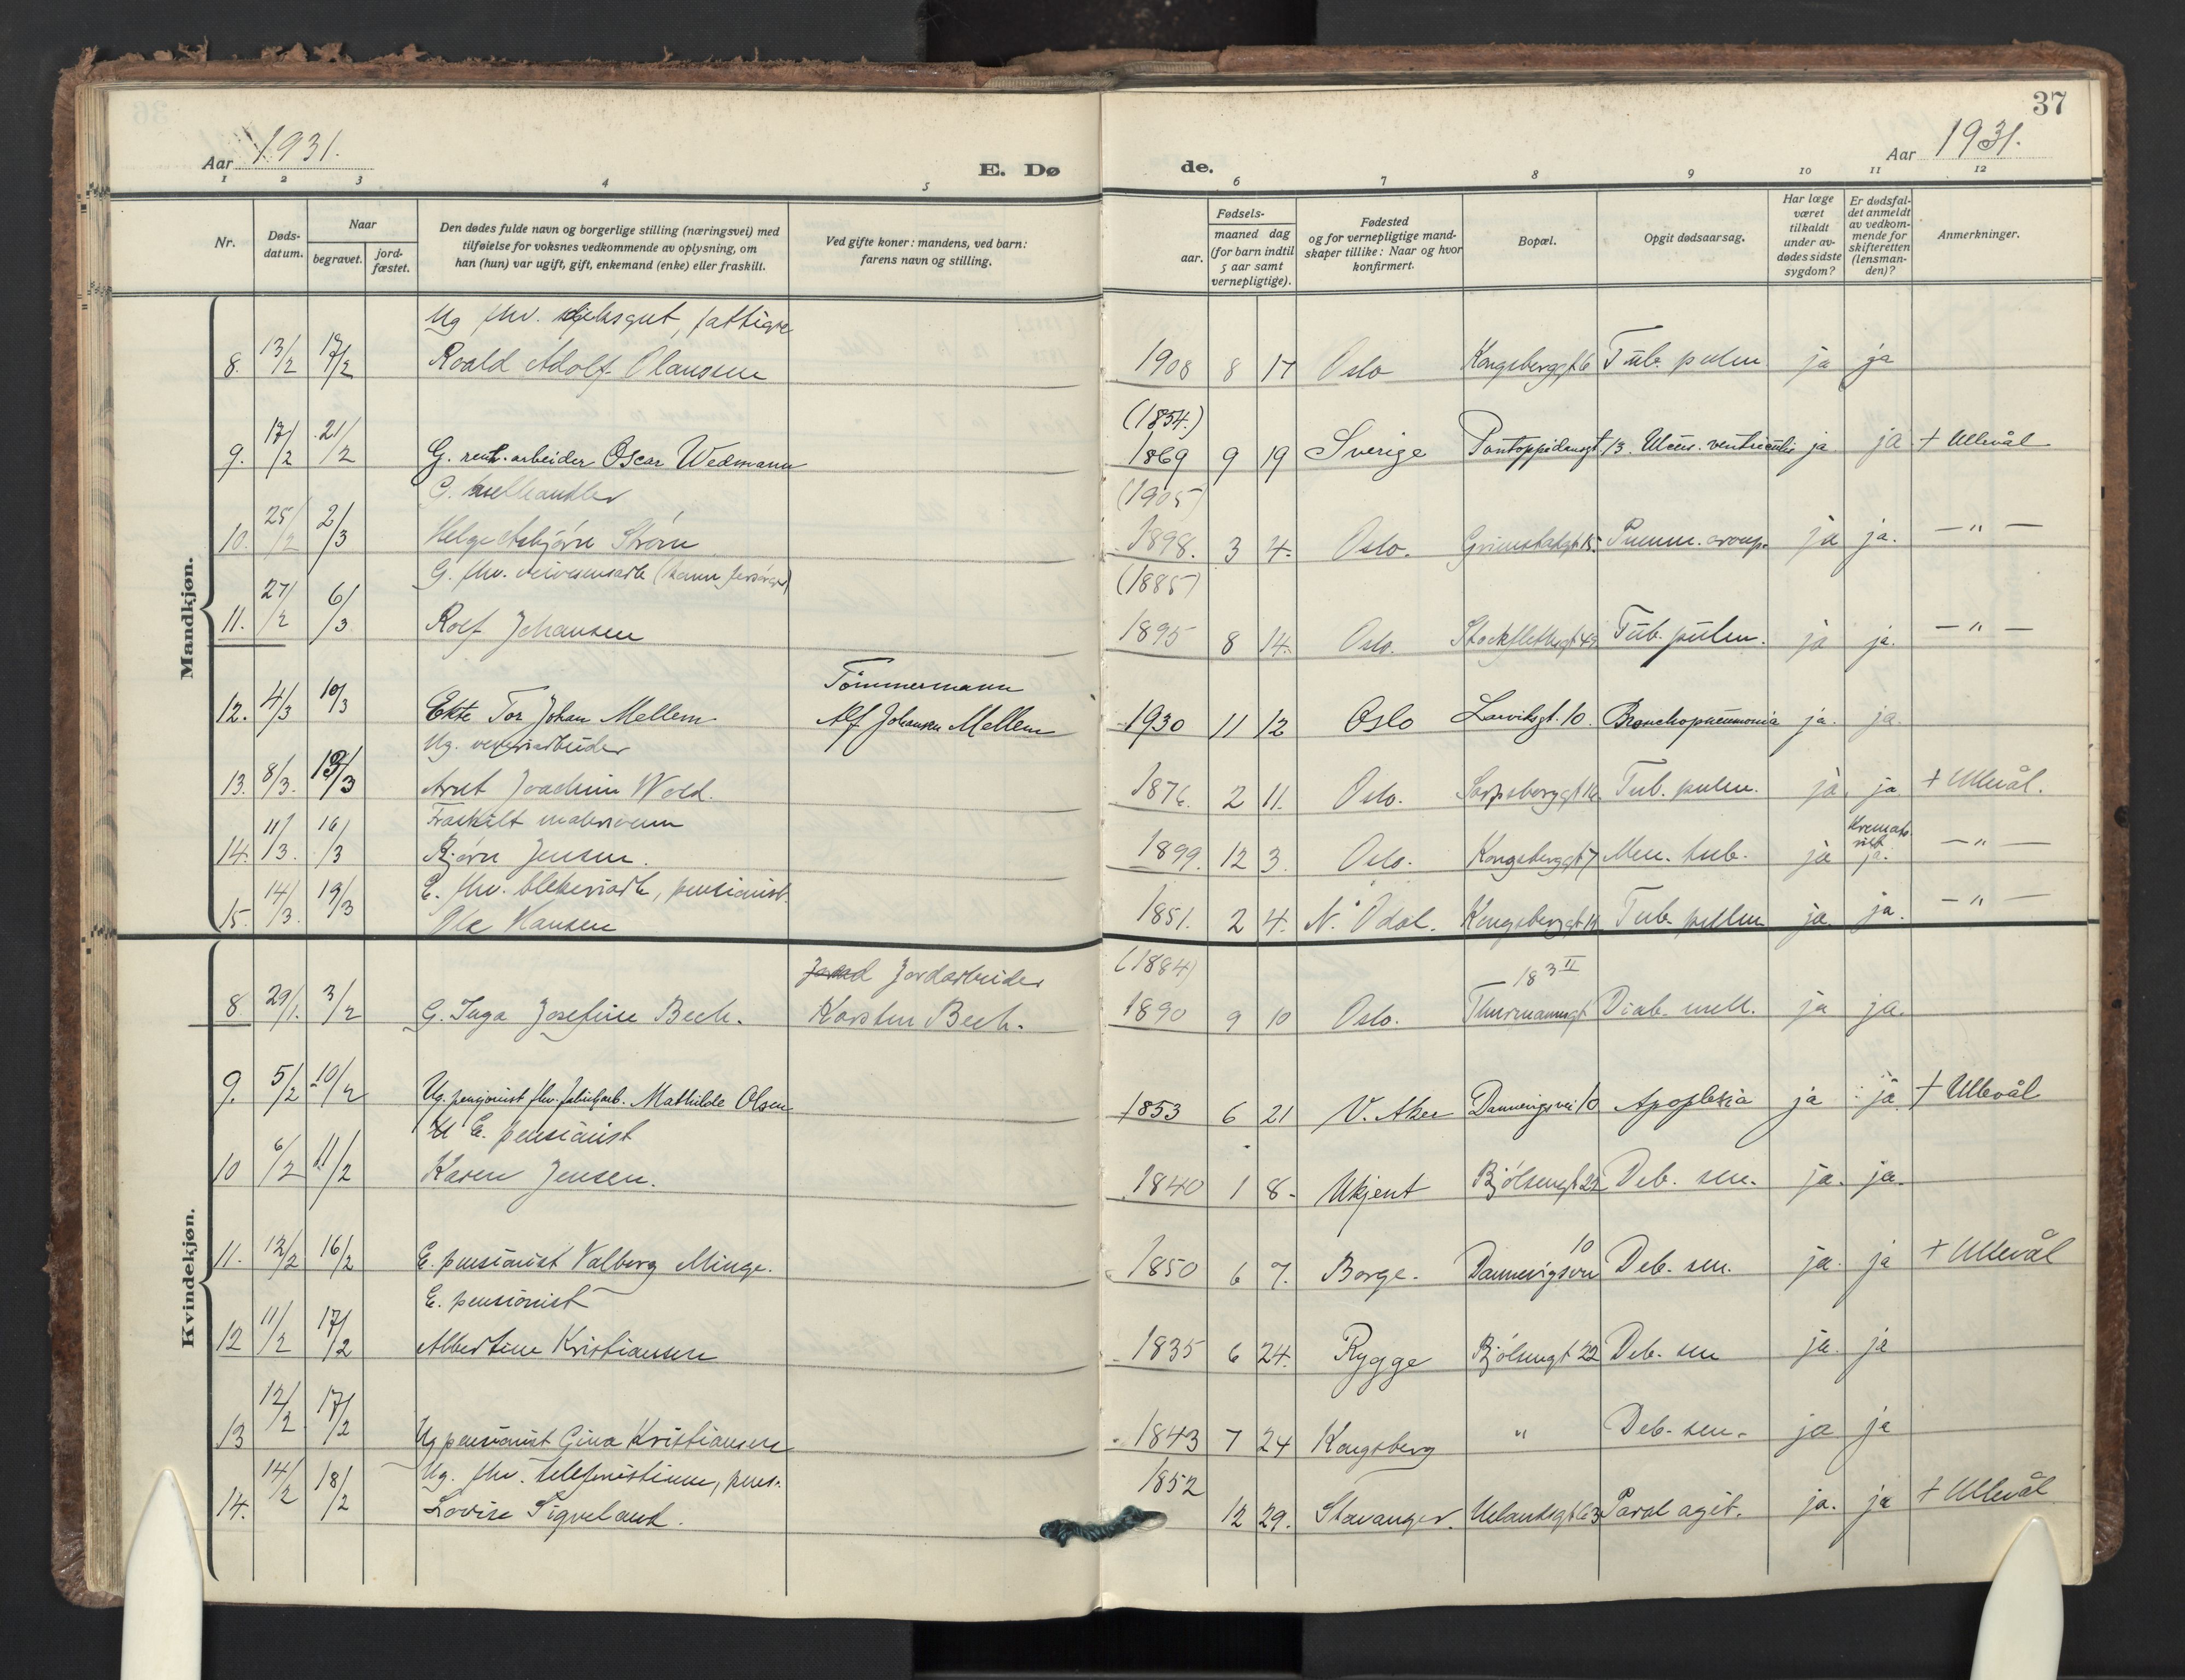 37
Aar 1931.
E. Dø
de.
Aar 1931.
1 2 3 4 5 6 7 8 9 10 11 12
Nr.
Døds-
datum.
Naar
begravet.
jord-
fæstet.
Den dødes fulde navn og borgerlige stilling (næringsvei) med
tilføielse for voksnes vedkommende av oplysning, om
han (hun) var ugift, gift, enkemand (enke) eller fraskilt.
Ved gifte koner: mandens, ved barn:
farens navn og stilling.
Fødsels-
aar.
maaned dag
(for barn indtil
5 aar samt
vernepligtige).
Fødested
og for vernepligtige mand-
skaper tillike: Naar og hvor
konfirmert.
Bopæl.
Opgit dødsaarsag.
Har læge
været
tilkaldt
under av-
dødes sidste
sygdom?
Er dødsfal-
det anmeldt
av vedkom-
mende for
skifteretten
(lensman-
den)?
Anmerkninger.
Mandkjøn.
Ug fhv.
8. 13/2 17/2 Roald Adolf Olaussen 1908 8 17 Oslo Kongsberggt 6 Tub. pulm. ja ja
(1854.)
9. 17/2 21/2 G. renh. arbeider Oscar Wedmann 1869 9 19 Sverige Pontoppidansgt. 13. Ulcus. ventriculi ja ja + Ullevål
G. melhandler (1905)
10. 25/2 2/3 Helge Asbjørn Strøm 1898. 3 4. Oslo. Grimstadgt 15. Pneum. croup. ja ja. — " —
G. fhv. veivesensarb (1885)
11. 27/2 6/3 Rolf Johansen 1895 8 14. Oslo. Stockflethsgt 43 Tub. pulm. ja ja. — " —
Tömmermann
12. 4/3 10/3 Ekte Tor Johan Mellem Alf Johansen Mellem 1930 11 12 Oslo Larviksgt. 10. Bronchopneumonia ja. ja.
Ug. veveriarbeider
13. 8/3. 13/3 Arnt Joachim Wold. 1876. 2 11. Oslo. Sarpsborggt 16 Tub. pulm. ja ja + Ullevål.
Fraskilt malersvenn
14. 11/3. 16/3 Bjørn Jensen. 1899. 12 3. Oslo. Kongsberggt 7 Men. tub. ja ja. — " —
E. fhv. blekeriarb, pensionist.
15. 14/3. 19/3 Ole Hansen 1851. 2 4. N. Odal. Kongsberggt Tub. pulm ja. ja. — " —
Kvindekjøn.
Jordarbeider (1884) 18 3 II
8. 29/1. 3/2 G. Inga Josefine Bech. Karsten Bech. 1890 9 10 Oslo. Thurmannsgt Diab. mell. ja ja.
9. 5/2 10/2 Ug. pensjonist fhv. fabrikarb. Mathilde Olsen 1853 6 21 V. Aker Dannevigsvei 10 Apoplexia ja ja + Ullevål
E. pensionist
10 6/2 11/2 Karen Jensen. 1840 1 8. Ukjent Bjølsengt 22 Deb. sen. ja. ja.
11. 12/2 16/2 E. pensionist Valborg Minge. 1850 6 7. Borge. Dannevigsvei 10 Deb. sen. ja. ja + Ullevål
E. pensionist
12 11/2 17/2 Albertine Kristiansen 1835 6 24. Rygge Bjølsengt 22 Deb. sen ja. ja
13 12/2 17/2 Ug pensionist Gina Kristiansen 1843 7 24 Kongsberg " Deb. sen. ja ja
Ug. fhv. telefonistinne, pens.
14. 14/2 18/2 Lovise Sigveland. 1852 12 29. Stavanger. Uelandsgt 63 Paral agit. ja. ja + Ullevål